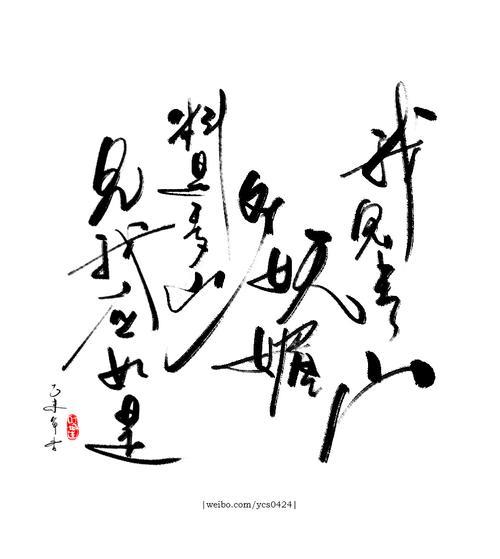 我见青山
多妩媚
料青山
见我应如是
乙未
|weibo.com/ycs0424|